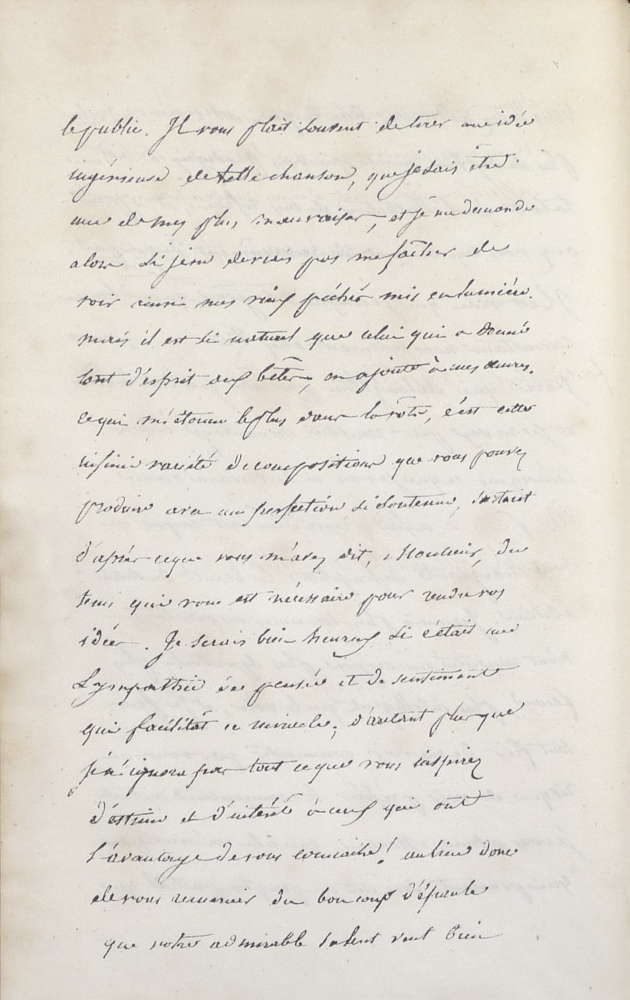 le public. Il vous plait souvent de tirer une idée
ingénieuse de telle chanson, que je sais être
une de mes plus mauvaises, et je me demande
alors si je ne devrais pas me fâcher de
voir ainsi mes vieux péchés mis en lumière.
mais il est si naturel que celui qui a donné
tant d'esprit aux bêtes, en ajoute à mes œuvres.
Ce qui m'étonne le plus dans la vôtre, c'est cette
infinie variété de compositions que vous pouvez
produire avec une perfection si soutenue, surtout
d'après ce que vous m'avez dit, Monsieur, du
tems qui vous est nécessaire pour rendre vos
idées. Je serais bien heureux si c'était une
sympathie de pensée et de sentiments
qui facilitât ce miracle, d'autant plus que
je n'ignore pas tout ce que vous inspirez
d'estime et d'intérêt à ceux qui ont
l'avantage de vous connaître! au lieu donc
de vous remercier du bon coup d'épaule
que votre admirable talent veut bien